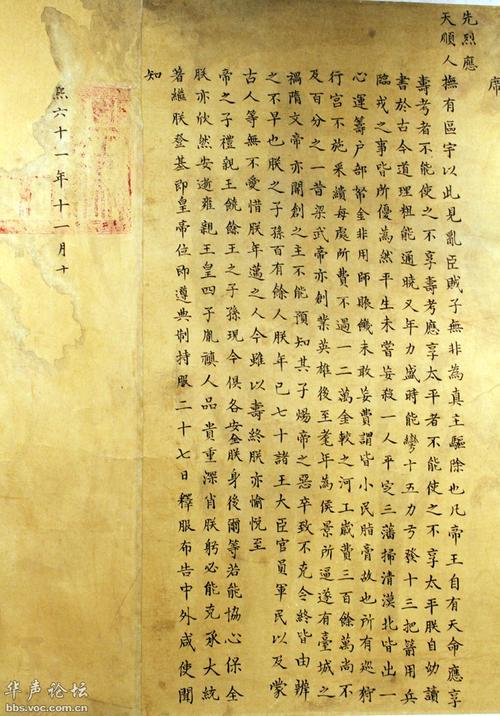 席
先烈應
天順人撫有區宇以此見亂臣賊子無非為真主驅除也凡帝王自有天命應享
壽考者不能使之不享壽考應享太平者不能使之不享太平朕自幼讀
書於古今道理粗能通曉又年力盛時能彎十五力弓發十三把箭用兵
臨戎之事皆所優為然平生未嘗妄殺一人平定三藩掃清漠北皆出一
心運籌戶部帑金非用師賑饑未敢妄費謂皆小民脂膏故也所有巡狩
行宮不施采繢每處所費不過一二萬金較之河工歲費三百餘萬尚不
及百分之一昔梁武帝亦創業英雄後至耄年為侯景所逼遂有臺城之
禍隋文帝亦開創之主不能預知其子煬帝之惡卒致不克令終皆由辨
之不早也朕之子孫百有餘人朕年已七十諸王大臣官員軍民以及蒙
古人等無不愛惜朕年邁之人今雖以壽終朕亦愉悅至
帝之子禮親王饒餘王之子孫現今俱各安全朕身後爾等若能協心保全
朕亦欣然安逝雍親王皇四子胤禛人品貴重深肖朕躬必能克承大統
著繼朕登基即皇帝位即遵典制持服二十七日釋服布告中外咸使聞
知
熙六十一年十一月十
华声论坛
bbs.voc.com.cn